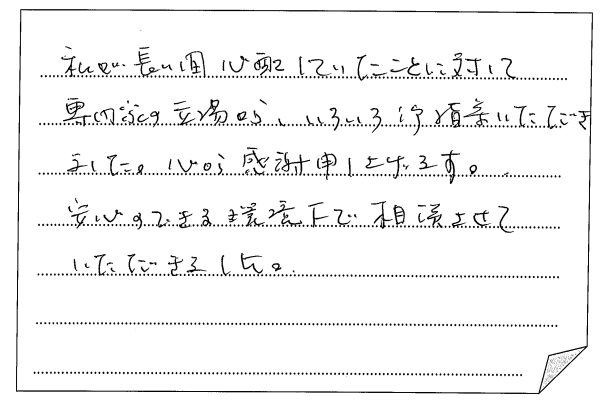 私が長い間心配していたことに対して
専門家の立場から、いろいろ御頂きいただき
ました。心から感謝申し上げます。
安心のできる環境下で相談させて
いただきました。